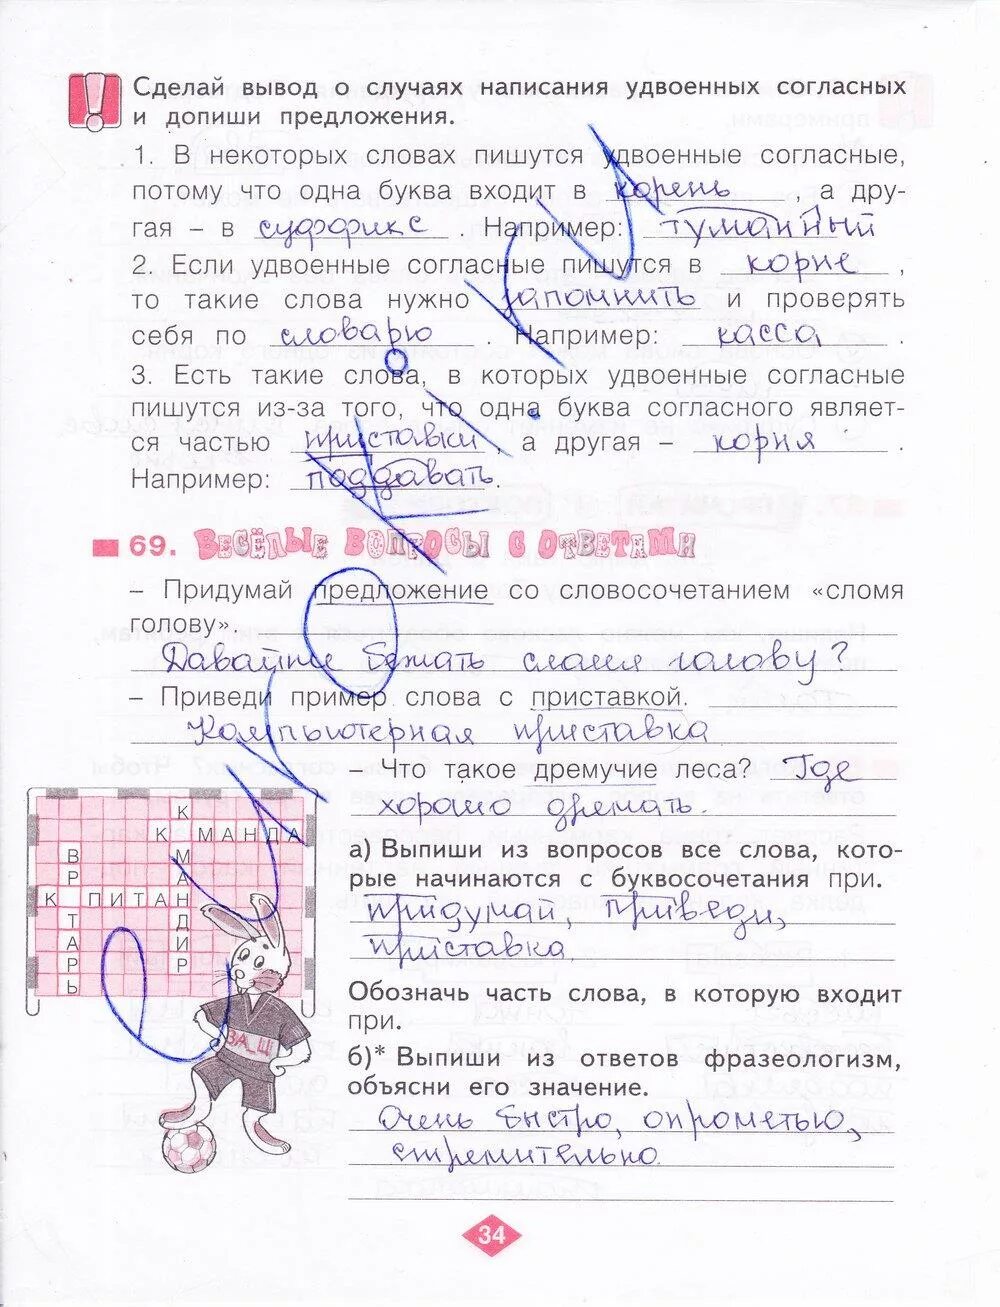 Сделай вывод о случаях написания удвоенных согласных
и допиши предложения.
1. В некоторых словах пишутся удвоенные согласные,
потому что одна буква входит в корень, а дру-
гая – в суффикс. Например: туманный
2. Если удвоенные согласные пишутся в корне,
то такие слова нужно запомнить и проверять
себя по словарю. Например: касса.
3. Есть такие слова, в которых удвоенные согласные
пишутся из-за того, что одна буква согласного являет-
ся частью приставки, а другая – корня.
Например: поддавать.
69. ВЕСЁЛЫЕ ВОПРОСЫ С ОТВЕТАМИ
– Придумай предложение со словосочетанием «сломя
голову».
Давайте бежать сломя голову?
– Приведи пример слова с приставкой.
Компьютерная приставка
– Что такое дремучие леса? Где
хорошо дремать.
К МАНДА
К МАНДИР
ВР ТАРЬ
К ПИТАН
а) Выпиши из вопросов все слова, кото-
рые начинаются с буквосочетания при.
придумай, приведи,
приставка.
Обозначь часть слова, в которую входит
при.
ЗА_Щ
б)* Выпиши из ответов фразеологизм,
объясни его значение.
Очень быстро, опрометью,
стремительно.
34